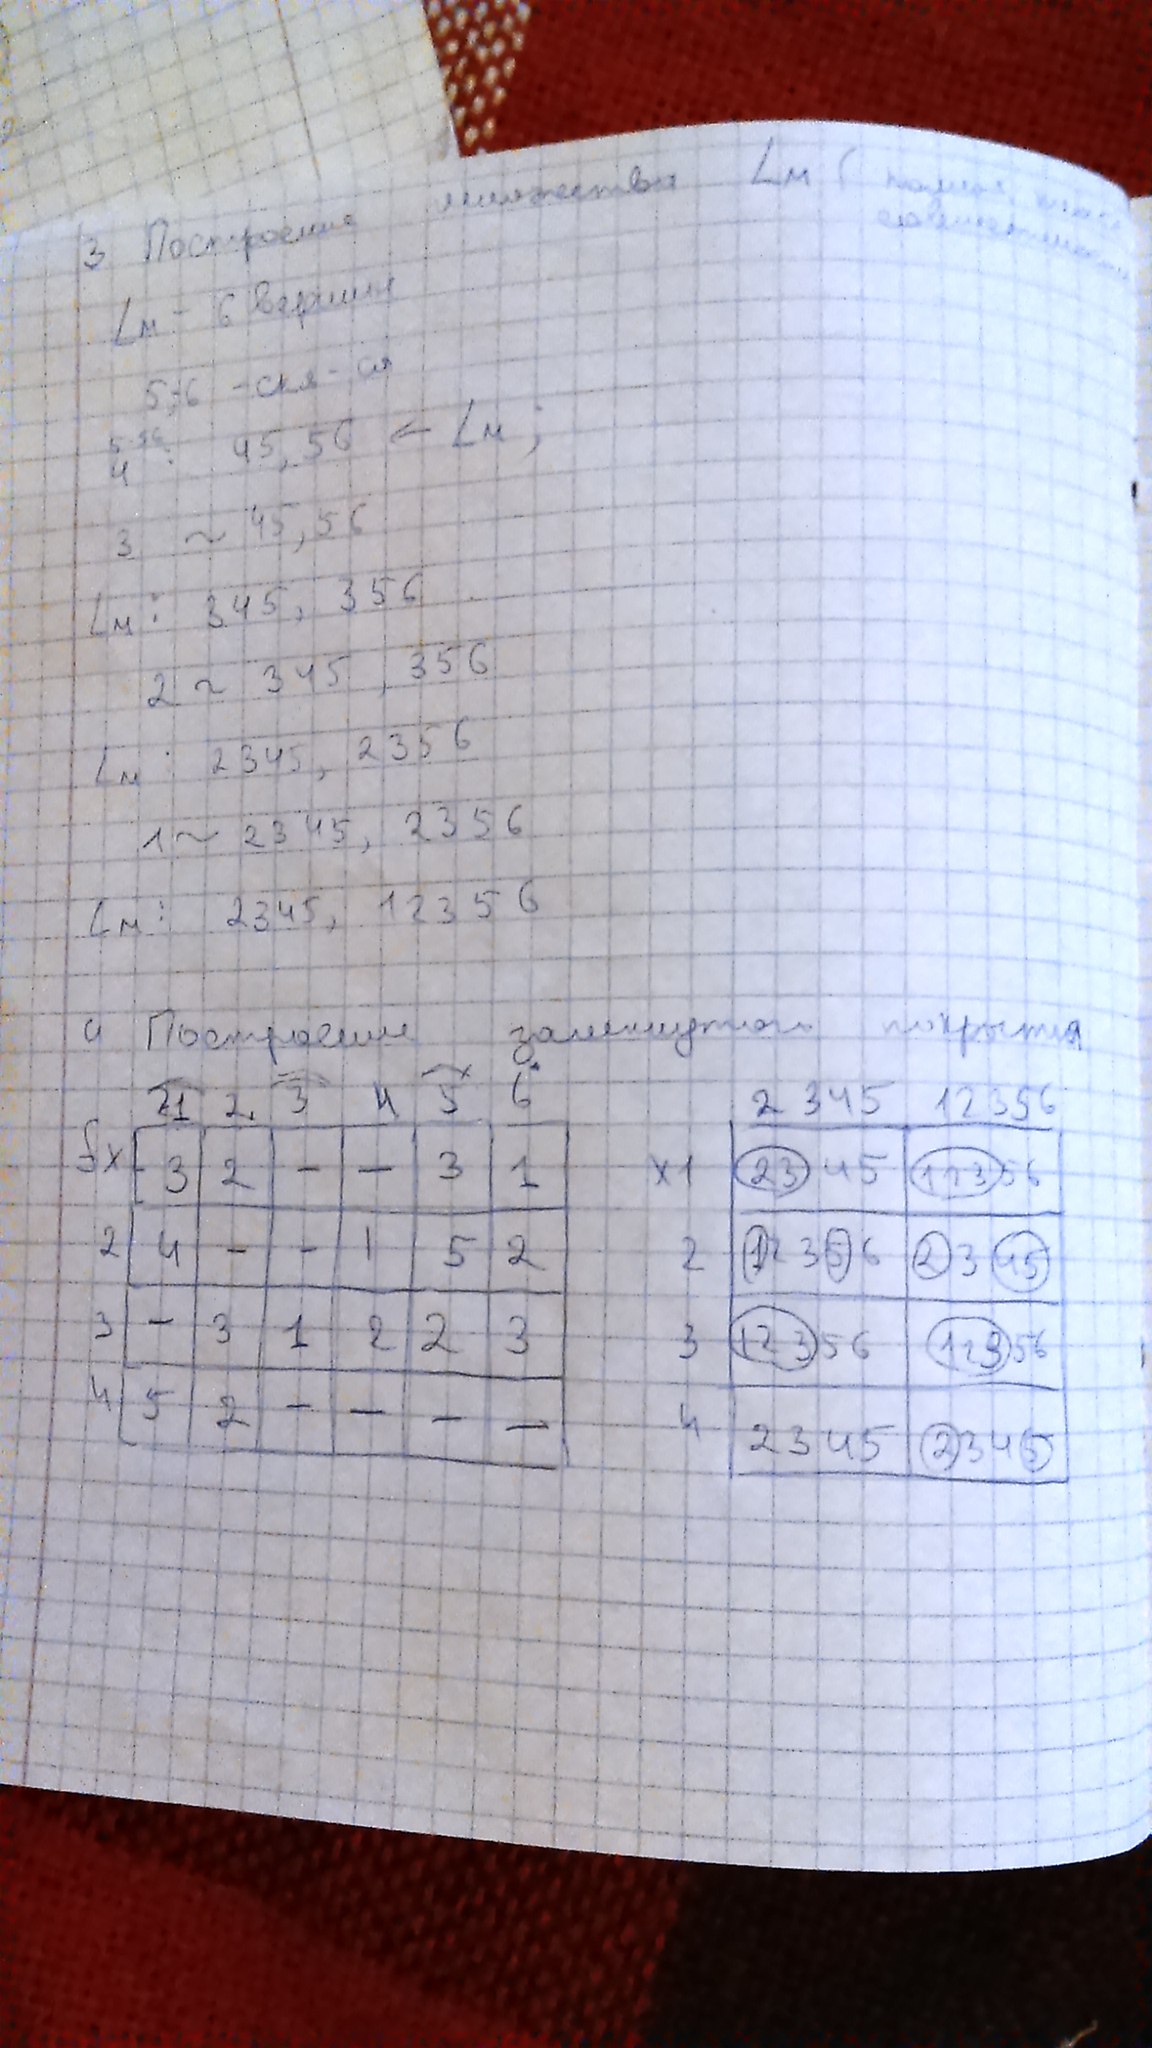 3 Построение множества Lм (
Lм - 6 вершин
5,6 -
5 56
4 : 45, 56 ← Lм ;
3 ~ 45, 56
Lм : 345, 356
2 ~ 345, 356
Lм : 2345, 2356
1 ~ 2345, 2356
Lм : 2345, 12356
4 Построение замкнутого покрытия
1 2 3 4 5 6
δx 3 2 - - 3 1
2 4 - - 1 5 2
3 - 3 1 2 2 3
4 5 2 - - - -
2345 12356
x1 2345 12356
2 12356 2345
3 12356 12356
4 2345 2345